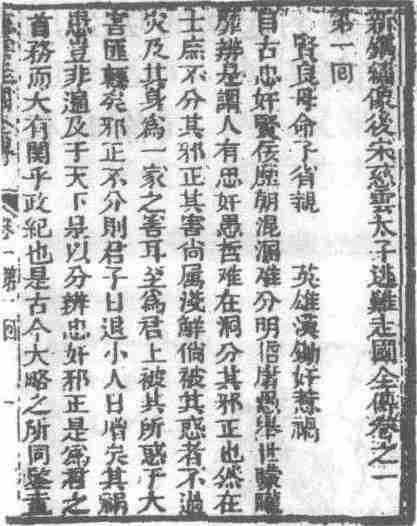 新鐫繡像後宋慈雲太子逃難走國全傳卷之一
第一回
賢良母命子省親　英雄漢鋤奸惹禍
自古忠奸賢佞歷朝混淆难分明庸愚舉世朦朧
靡辨是謂人有忠奸愚哲难在洞分其邪正也然在
士庶不分其邪正其害尚属淺鮮倘被其惑者不過
灾及其身為一家之害耳至為君上被其所惑于大
害匪輕矣邪正不分則君子日退小人日增矣其禍
患豈非遍及于天下是以分辨忠奸邪正是為君之
首務而大有関乎政紀也是古今大略之所同鑒盖
走國全傳　卷一第一回　一